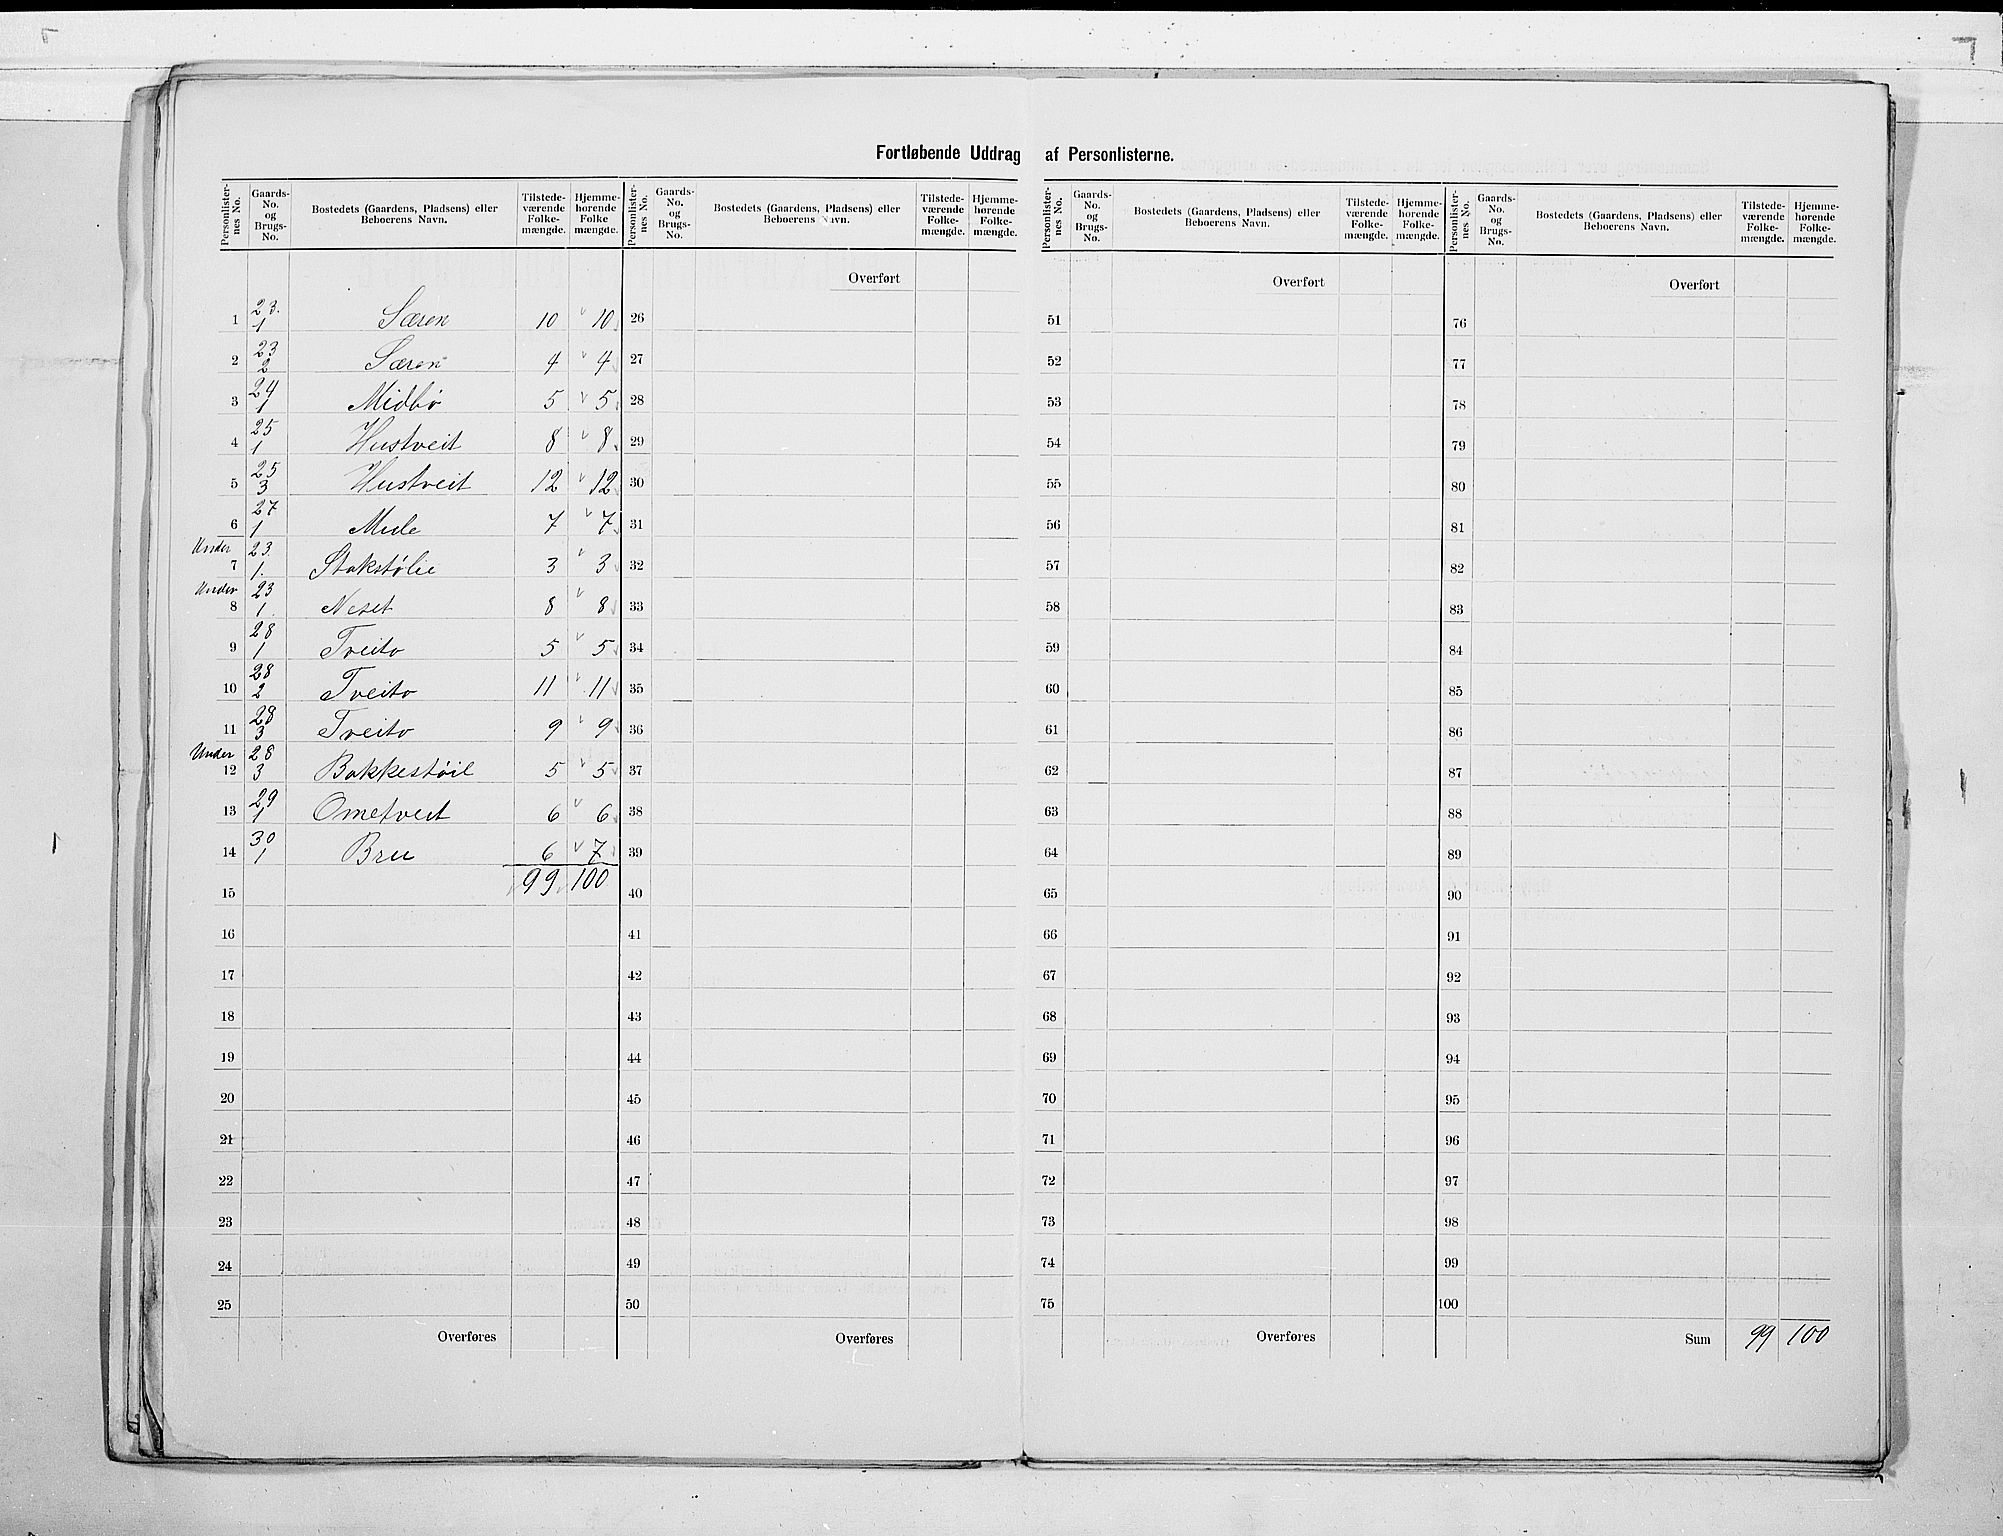 Fortløbende Uddrag af Personlisterne.
Personlister-nes No. | Gaards-No. og Brugs-No. | Bostedets (Gaardens, Pladsens) eller Beboerens Navn. | Tilstede-værende Folke-mængde. | Hjemme-hørende Folke mængde.
Personlister-nes No. | Gaards-No. og Brugs-No. | Bostedets (Gaardens, Pladsens) eller Beboerens Navn. | Tilstede-værende Folke-mængde. | Hjemme-hørende Folke-mængde.
Personlister-nes No. | Gaards-No. og Brugs-No. | Bostedets (Gaardens, Pladsens) eller Beboerens Navn. | Tilstede-værende Folke-mængde. | Hjemme-hørende Folke-mængde.
Personlister-nes No. | Gaards-No. og Brugs-No. | Bostedets (Gaardens, Pladsens) eller Beboerens Navn. | Tilstede-værende Folke-mængde. | Hjemme-hørende Folke-mængde.
Overført Overført Overført
1 23. 1 Særen 10 10 26 51 76
2 23 2 Særen 4 4 27 52 77
3 24 1 Midbø 5 5 28 53 78
4 25 1 Hustveit 8 8 29 54 79
5 25 3 Hustveit 12 12 30 55 80
6 27 1 Mule 7 7 31 56 81
Under 7 23. 1. Stokstølie 3 3 32 57 82
Under 8 23 1 Neset 8 8 33 58 83
9 28 1 Tveito 5 5 34 59 84
10 28 2 Tveito 11 11 35 60 85
11 28 3 Tveito 9 9 36 61 86
Under 12 28 3 Bakkestøil 5 5 37 62 87
13 29 1 Ometveit 6 6 38 63 88
14 30 1 Bru 6 7 39 64 89
15 99 100 40 65 90
16 41 66 91
17 42 67 92
18 43 68 93
19 44 69 94
20 45 70 95
21 46 71 96
22 47 72 97
23 48 73 98
24 49 74 99
25 50 75 100
Overføres Overføres Overføres Sum 99 100